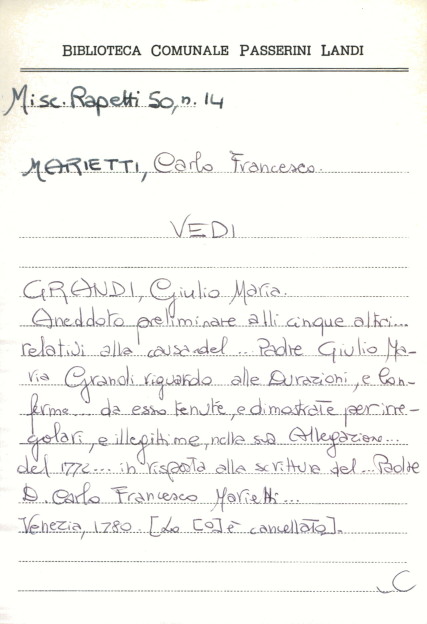 BIBLIOTECA COMUNALE PASSERINI LANDI
Misc. Rapetti 50, n. 14
MARIETTI, Carlo Francesco.
VEDI
GRANDI, Giulio Maria.
Aneddoto preliminare alli cinque altri...
relativi alla causa del... Padre Giulio Ma-
ria Grandi riguardo alle Durazioni, e Con-
ferme... da esso tenute, e dimostrate per irre-
golari, e illegittime, nella sua Allegazione...
del 1772... in risposta alla scrittura del... Padre
D. Carlo Francesco Marietti...
Venezia, 1780. [Lo [0] è cancellato].
C